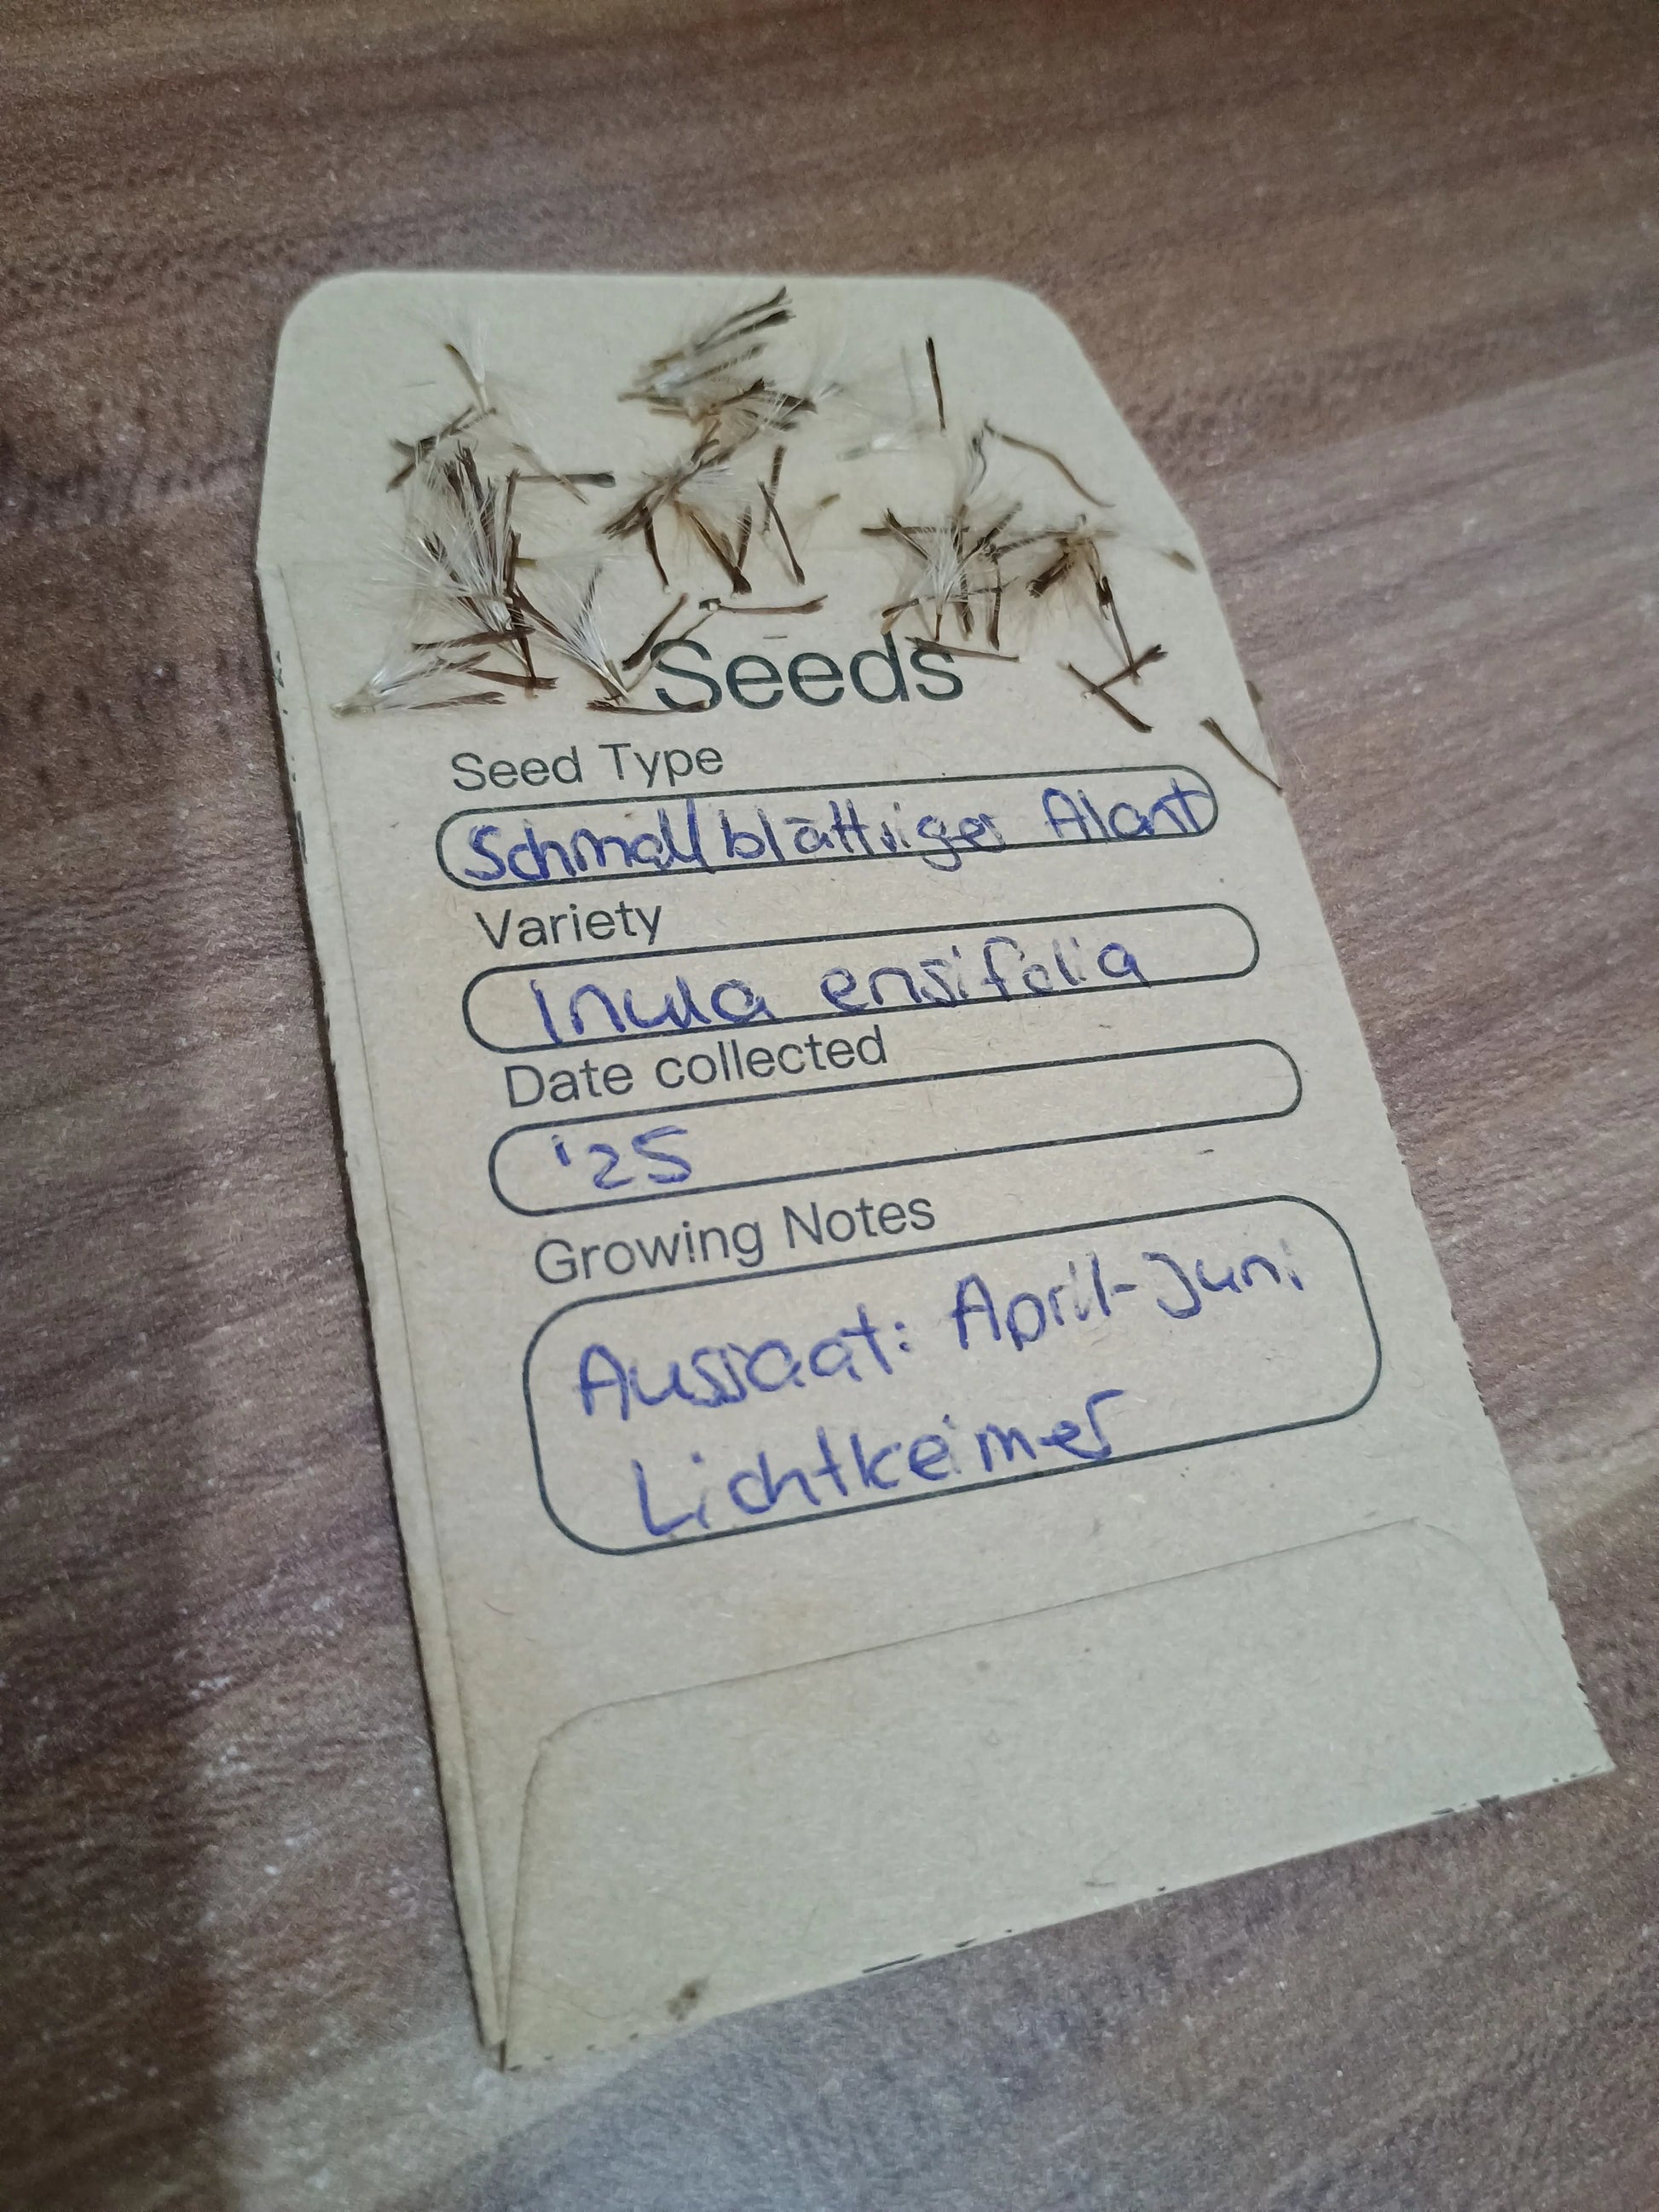 Seeds
Seed Type
Schmalblättriger Alant
Variety
Inula ensifolia
Date collected
'25
Growing Notes
Aussaat: April-Juni
Lichtkeimer